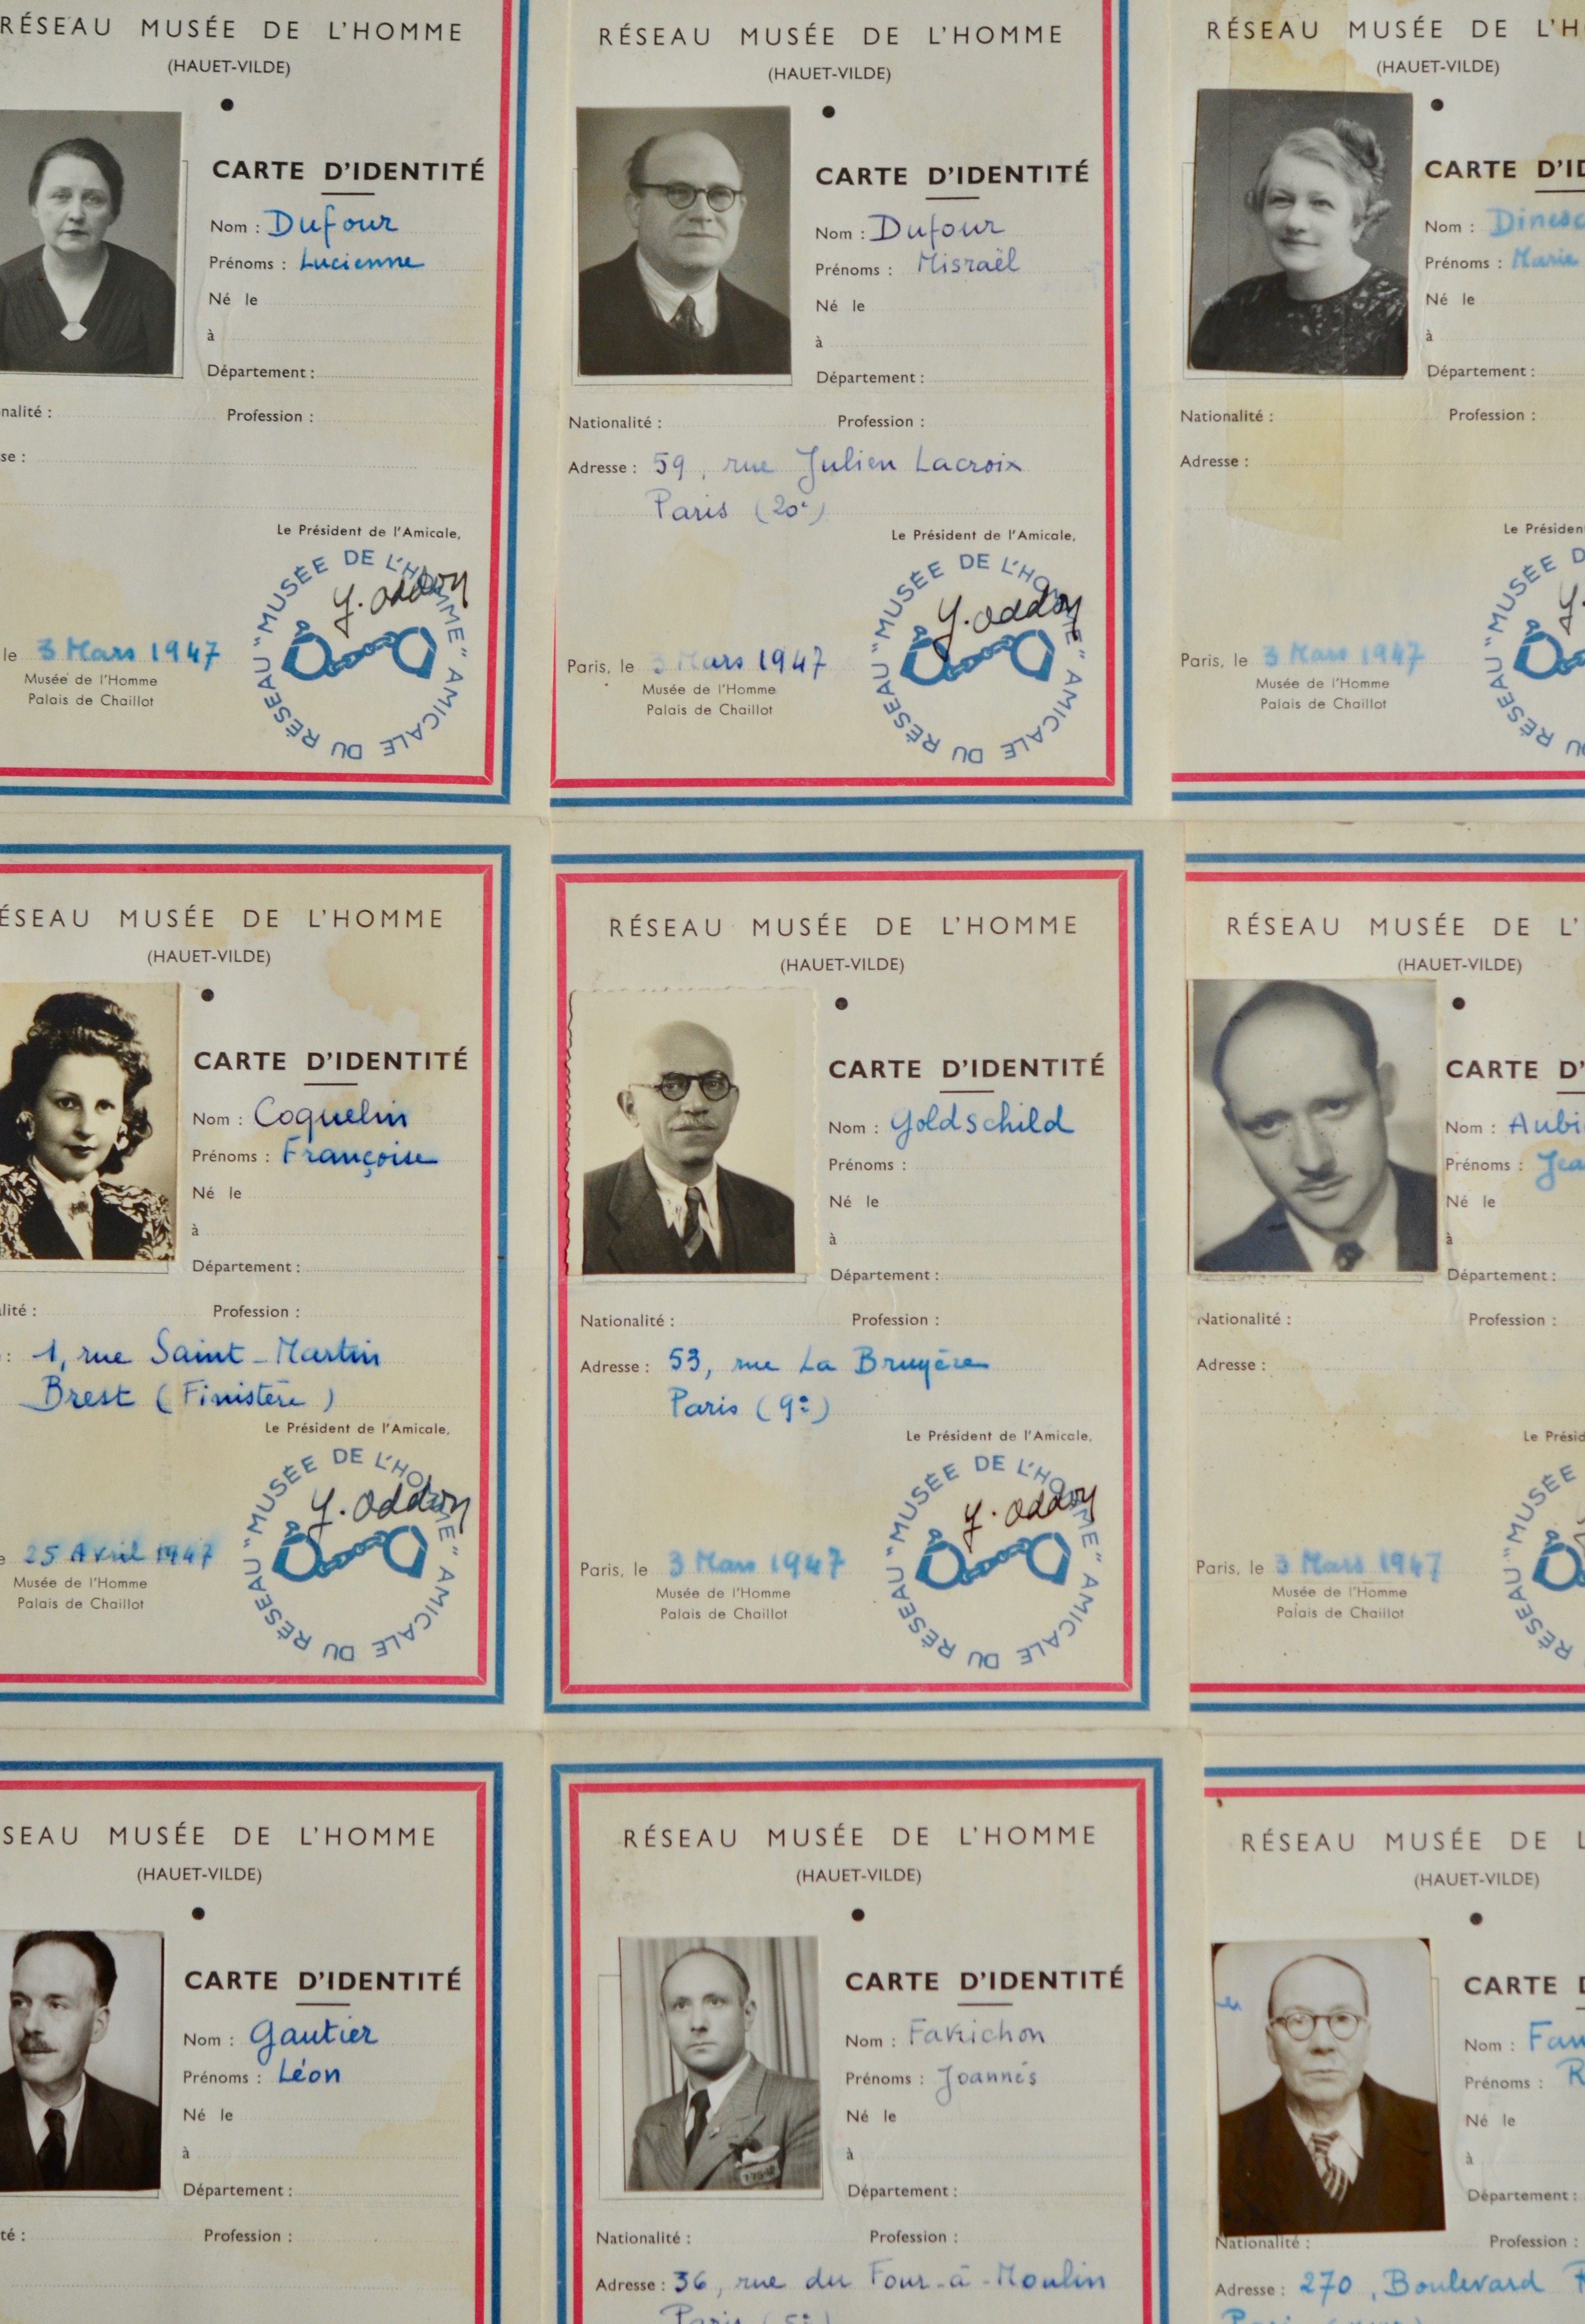 RÉSEAU MUSÉE DE L'HOMME
(HAUET-VILDE)
CARTE D'IDENTITÉ
Nom : Dufour
Prénoms : Lucienne
Né le
à
Département :
nalité : Profession :
se :
Le Président de l'Amicale,
Y. Oddon
le 3 Mars 1947
Musée de l'Homme
Palais de Chaillot
AMICALE DU RÉSEAU "MUSÉE DE L'HOMME"
RÉSEAU MUSÉE DE L'HOMME
(HAUET-VILDE)
CARTE D'IDENTITÉ
Nom : Dufour
Prénoms : Misraël
Né le
à
Département :
Nationalité : Profession :
Adresse : 59, rue Julien Lacroix
Paris (20e)
Le Président de l'Amicale,
Y. Oddon
Paris, le 3 Mars 1947
Musée de l'Homme
Palais de Chaillot
AMICALE DU RÉSEAU "MUSÉE DE L'HOMME"
RÉSEAU MUSÉE DE L'H
(HAUET-VILDE)
CARTE D'ID
Nom : Dinesc
Prénoms : Marie
Né le
à
Département :
Nationalité : Profession :
Adresse :
Le Présiden
Y.
Paris, le 3 Mars 1947
Musée de l'Homme
Palais de Chaillot
U RÉSEAU "MUSÉE D
ÉSEAU MUSÉE DE L'HOMME
(HAUET-VILDE)
CARTE D'IDENTITÉ
Nom : Coquelin
Prénoms : Françoise
Né le
à
Département :
lité : Profession :
: 1, rue Saint-Martin
Brest (Finistère)
Le Président de l'Amicale,
Y. Oddon
e 25 Avril 1947
Musée de l'Homme
Palais de Chaillot
AMICALE DU RÉSEAU "MUSÉE DE L'HOMME"
RÉSEAU MUSÉE DE L'HOMME
(HAUET-VILDE)
CARTE D'IDENTITÉ
Nom : Goldschild
Prénoms :
Né le
à
Département :
Nationalité : Profession :
Adresse : 53, rue La Bruyère
Paris (9e)
Le Président de l'Amicale,
Y. Oddon
Paris, le 3 Mars 1947
Musée de l'Homme
Palais de Chaillot
AMICALE DU RÉSEAU "MUSÉE DE L'HOMME"
RÉSEAU MUSÉE DE L'
(HAUET-VILDE)
CARTE D'
Nom : Aubi
Prénoms : Jea
Né le
à
Département :
Nationalité : Profession :
Adresse :
Le Présid
Paris, le 3 Mars 1947
Musée de l'Homme
Palais de Chaillot
RÉSEAU "MUSÉE
SEAU MUSÉE DE L'HOMME
(HAUET-VILDE)
CARTE D'IDENTITÉ
Nom : Gautier
Prénoms : Léon
Né le
à
Département :
té : Profession :
RÉSEAU MUSÉE DE L'HOMME
(HAUET-VILDE)
CARTE D'IDENTITÉ
Nom : Farichon
Prénoms : Joannés
Né le
à
Département :
Nationalité : Profession :
Adresse : 36, rue du Four-à-Moulin
Paris (5e)
RÉSEAU MUSÉE DE L
(HAUET-VILDE)
CARTE D
Nom : Fau
Prénoms : R
Né le
à
Département :
Nationalité : Profession :
Adresse : 270, Boulevard